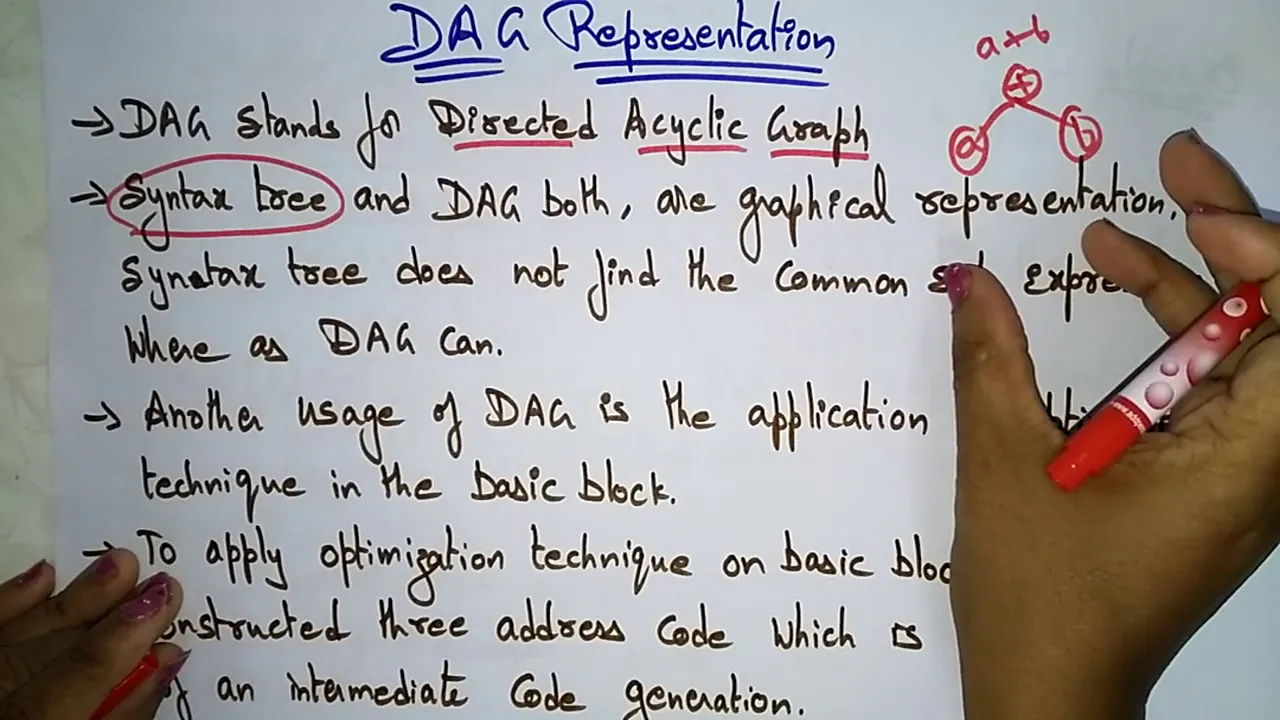 DAG Representation
a+b
+
a
b
→ DAG stands for Directed Acyclic Graph
→ Syntax tree and DAG both, are graphical representation.
Synatax tree does not find the common
Where as DAG Can.
→ Another usage of DAG is the application
technique in the basic block.
→ To apply optimization technique on basic
three address code which is
of an intermediate code generation.